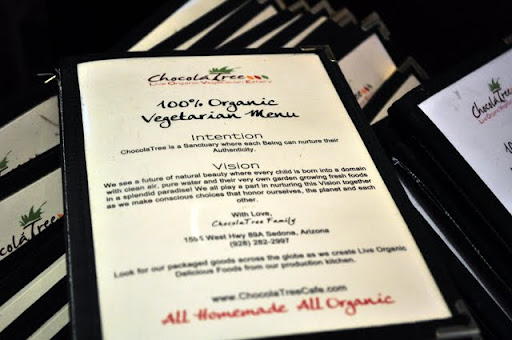 ChocolaTree
Live Organic Vegetarian Eatery
100% Organic
Vegetarian Menu
Intention
ChocolaTree is a Sanctuary where each Being can nurture their
Authenticity.
Vision
We see a future of natural beauty where every child is born into a domain
with clean air, pure water and their very own garden growing fresh foods
in a splendid paradise! We all play a part in nurturing this Vision together
as we make conscious choices that honor ourselves, the planet and each
other.
With Love,
ChocolaTree Family
West Hwy 89A Sedona, Arizona
(928) 282-2997
Look for our packaged goods across the globe as we create Live Organic
Delicious Foods from our production kitchen.
www.ChocolaTreeCafe.com
All Homemade All Organic
ChocolaTree
ChocolaTree